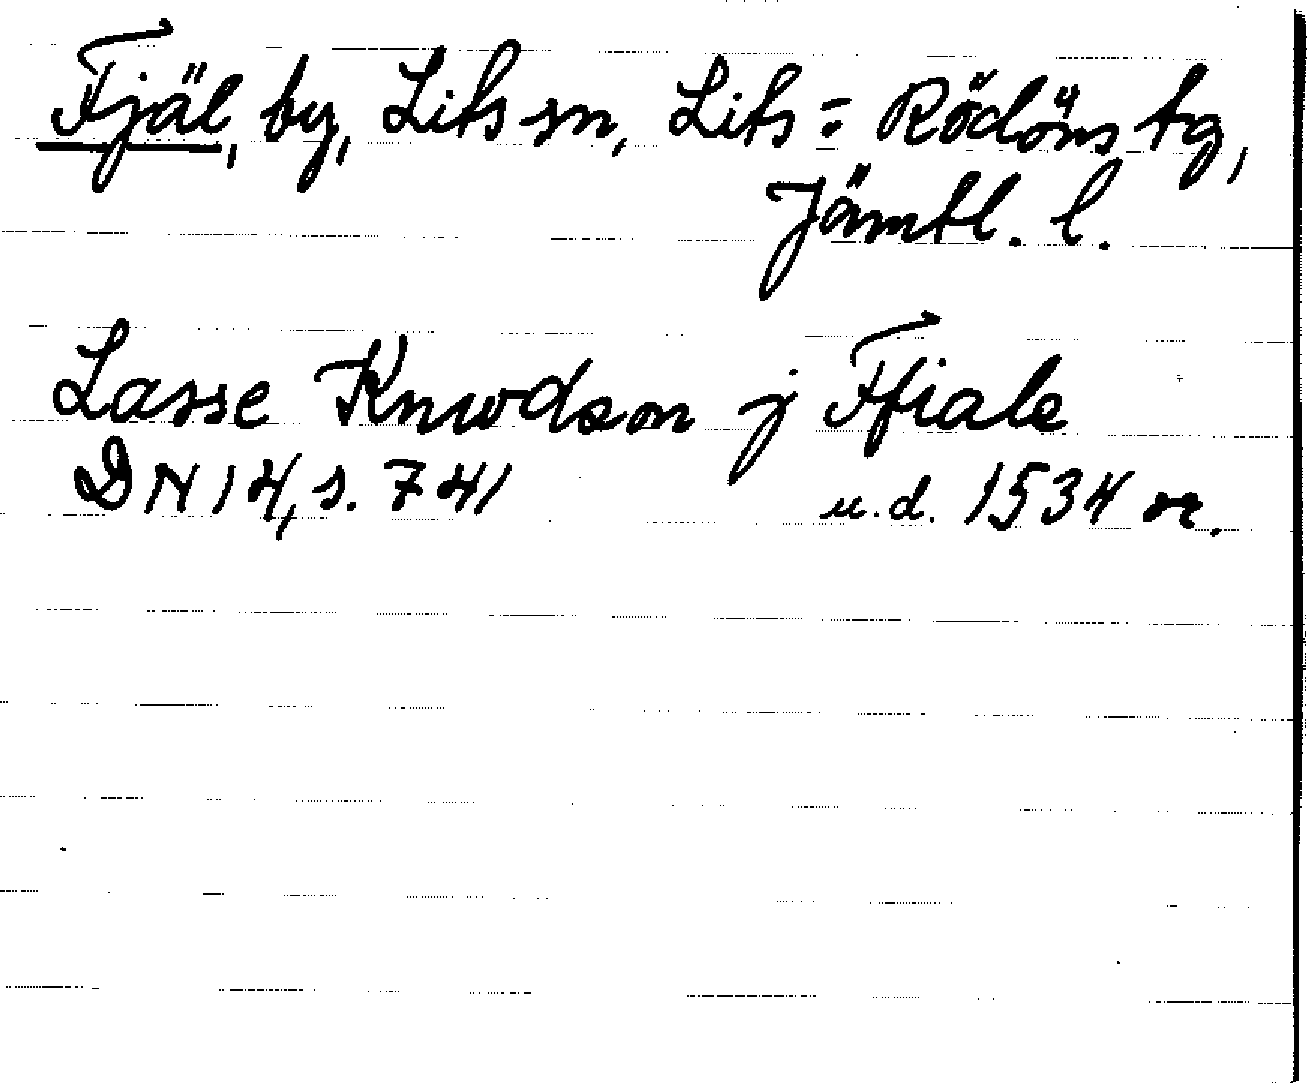 Fjäl, by, Lits sn, Lits = Rödöns tg,
Jämtl. l.
Lasse Knwdson j Ffiale
DN 14, s. 741 u.d. 1534 or.